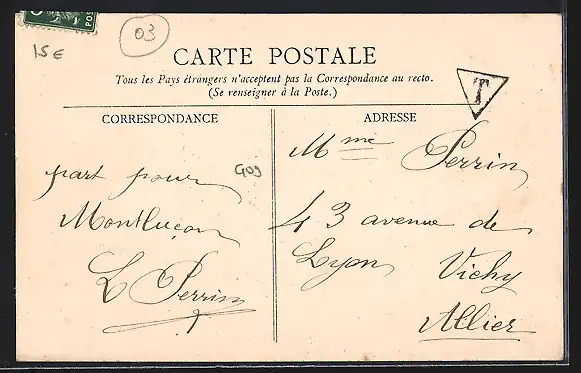 POS
15 €
03
CARTE POSTALE
Tous les Pays étrangers n'acceptent pas la Correspondance au recto.
(Se renseigner à la Poste.)
T
CORRESPONDANCE
part pour
Montluçon
L Perrin
ADRESSE
Mme Perrin
43 avenue de
Lyon Vichy
Allier